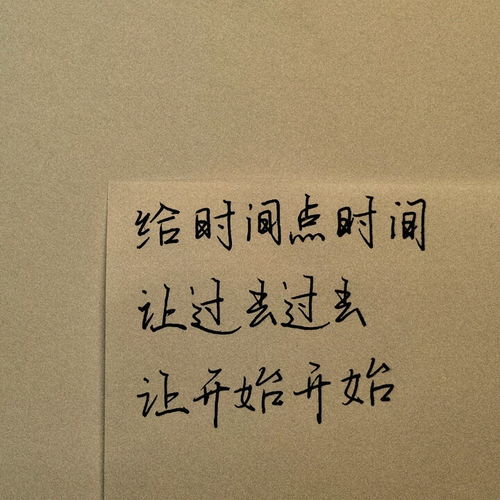 给时间点时间
让过去过去
让开始开始